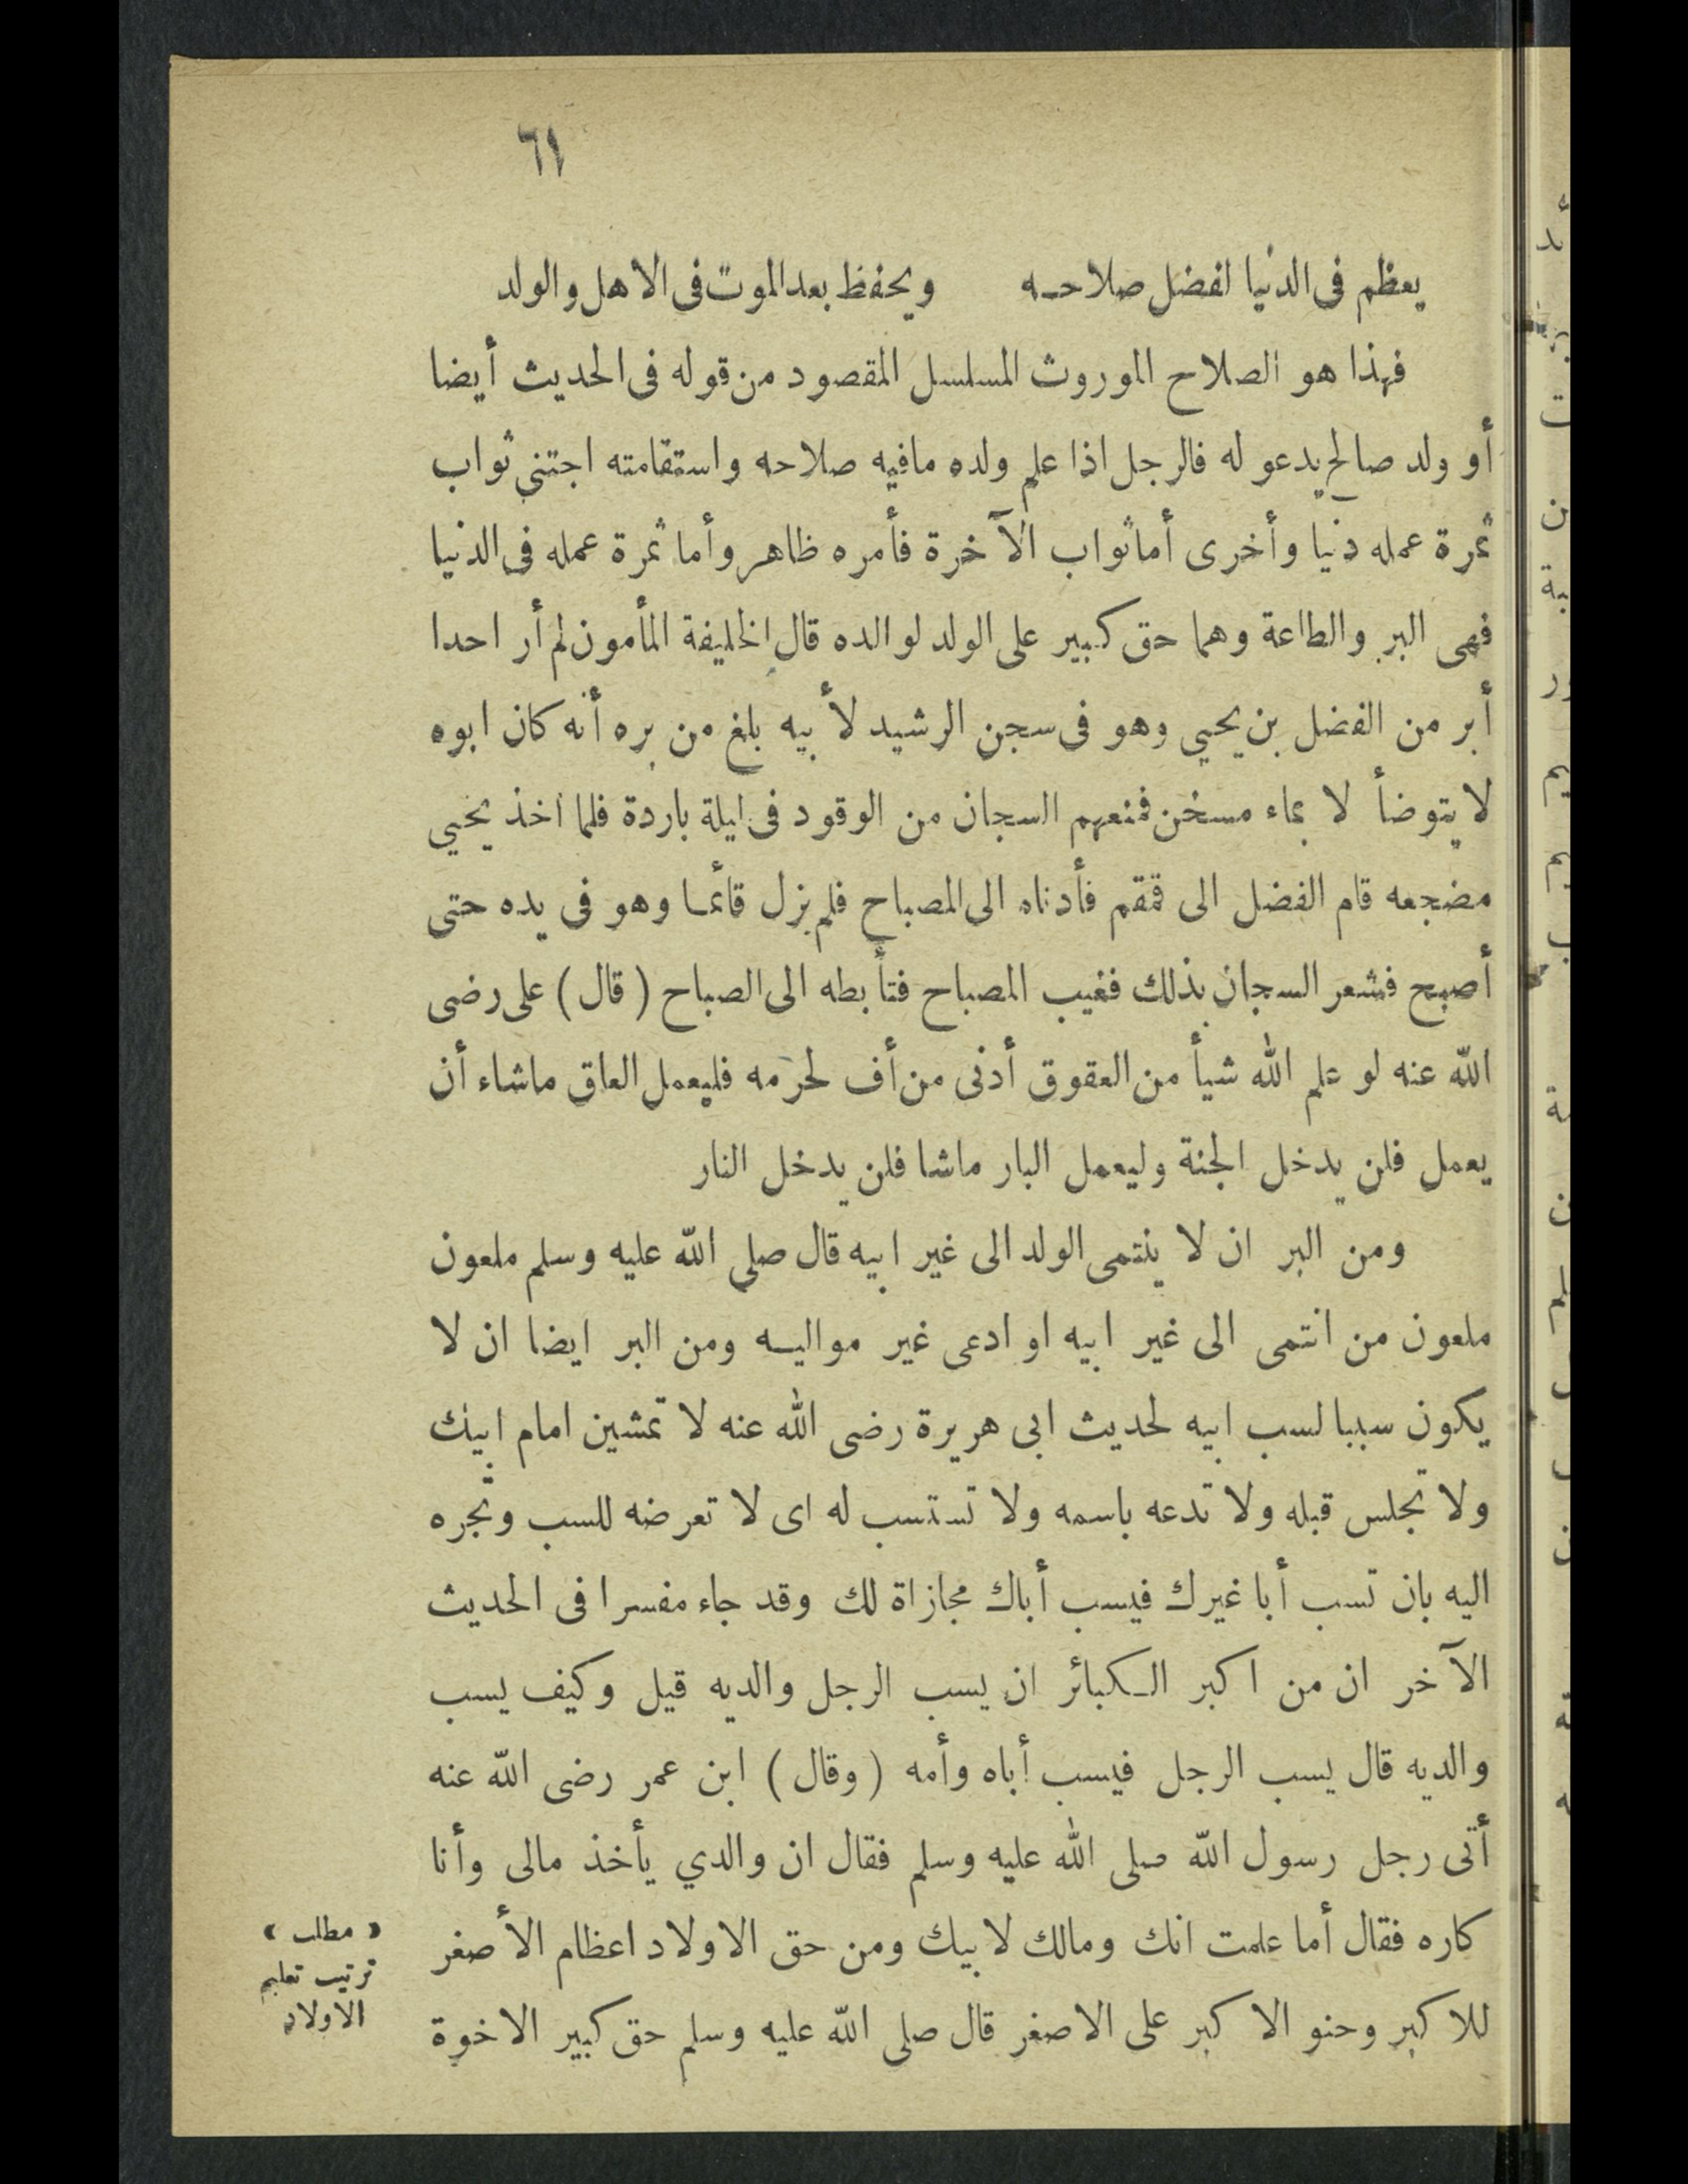 ٦١
يعظم فى الدنيا لفضل صلاحـه ويحفظ بعد الموت فى الأهل والولد
فهذا هو الصلاح الموروث المسلسل المقصود من قوله فى الحديث أيضا
أو ولد صالح يدعو له فالرجل اذا علم ولده مافيه صلاحه واستقامته اجتنى ثواب
ثمرة عمله دنيا وأخرى أما ثواب الآخرة فأمره ظاهر وأما ثمرة عمله فى الدنيا
فهى البر والطاعة وهما حق كبير على الولد لوالده قال الخليفة المأمون لم أر احدا
أبر من الفضل بن يحيي وهو فى سجن الرشيد لأبيه بلغ من بره أنه كان ابوه
لا يتوضأ لا بماء مسخن فمنعهم السجان من الوقود فى ليلة باردة فلما أخذ يحيي
مضجعه قام الفضل الى قمقم فأدناه الى المصباح فلم يزل قائمـا وهو فى يده حتى
أصبح فشعر السجان بذلك فغيب المصباح فتأبطه الى الصباح ( قال ) على رضى
الله عنه لو علم الله شيأ من العقوق أدنى من أف لحرمه فليعمل العاق ماشاء أن
يعمل فلن يدخل الجنة وليعمل البار ماشا فلن يدخل النار
ومن البر ان لا ينتمى الولد الى غير ابيه قال صلى الله عليه وسلم ملعون
ملعون من انتمى الى غير ابيه او ادعى غير مواليـه ومن البر ايضا ان لا
يكون سببا لسب ابيه لحديث ابى هريرة رضى الله عنه لا تمشين امام ابيك
ولا تجلس قبله ولا تدعه باسمه ولا تستسب له اى لا تعرضه للسب وتجره
اليه بان تسب أبا غيرك فيسب أباك مجازاة لك وقد جاء مفسرا فى الحديث
الآخر ان من اكبر الـكبائر ان يسب الرجل والديه قيل وكيف يسب
والديه قال يسب الرجل فيسب أباه وأمه ( وقال ) ابن عمر رضى الله عنه
أتى رجل رسول الله صلى الله عليه وسلم فقال ان والدي يأخذ مالى وأنا
كاره فقال أما علمت انك ومالك لابيك ومن حق الاولاد اعظام الأصغر
للاكبر وحنو الاكبر على الاصغر قال صلى الله عليه وسلم حق كبير الاخوة
﴿ مطلب ﴾
ترتيب تعليم
الاولاد